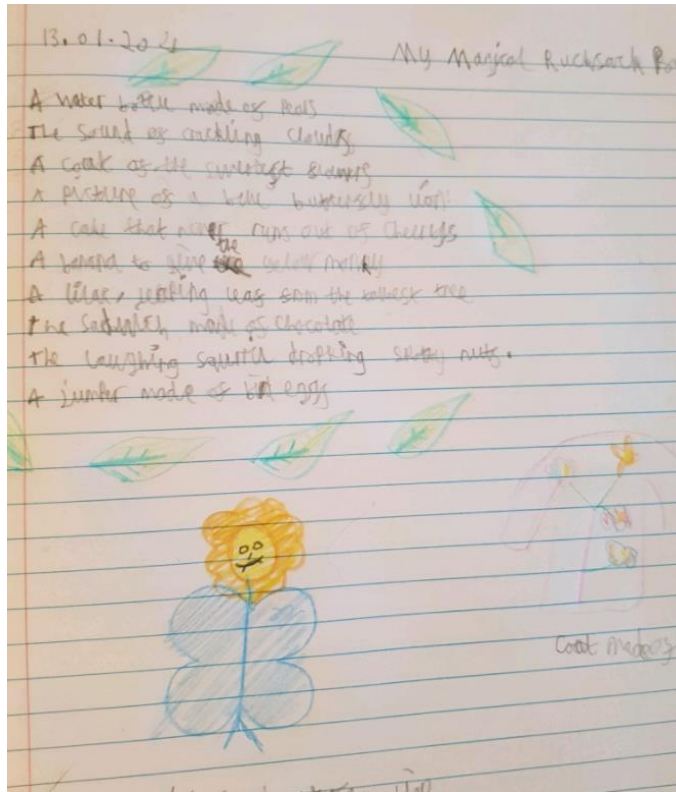 13.01.2021
My Magical Rucksack
A water bottle made of
The sound of crackling clouds
A coat of the sweetest flowers
A picture of a blue butterfly lion
A cake that never runs out of cherrys
A banana to give the yellow
A lilac, leaf from the tallest tree
The made of chocolate
The laughing dropping nuts.
A jumper made of eggs
Coat made of